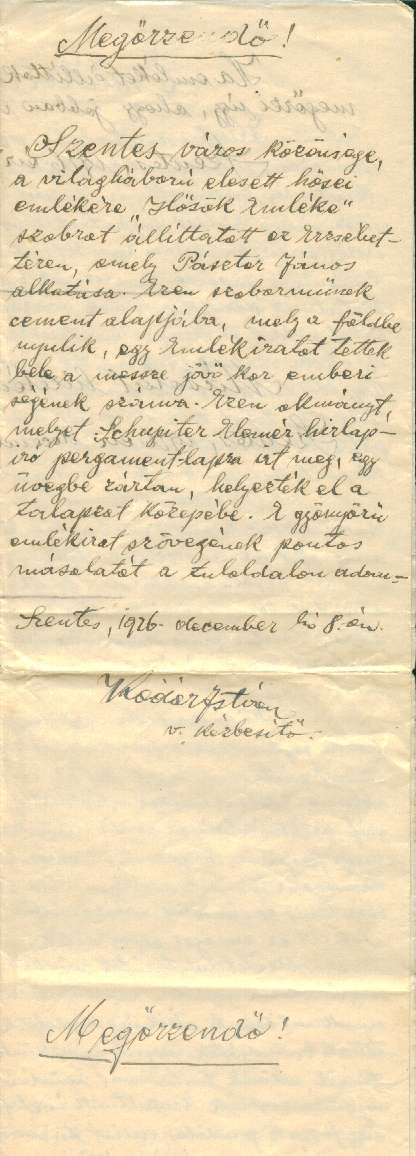 Megőrzendő!
Szentes város közönsége,
a világháború elesett hősei
emlékére „Hősök Emléke"
szobrot állíttatott az Erzsébet-
téren, amely Pásztor János
alkotása. Ezen szoborműnek
cement alapjába, mely a földbe
nyulik, egy Emlékiratot tettek
bele a messze jövő kor emberi
ségének szánva. Ezen okmányt,
melyet Schupiter Elemér hirlap-
iró pergament-lapra irt meg, egy
üvegbe zártan, helyezték el a
talapzat közepébe. E gyönyörü
emlékirat szövegének pontos
másolatát a tuloldalon adom-
Szentes, 1926. december hó 8.-án.
István
v. kézbesitő.
Megőrzendő!